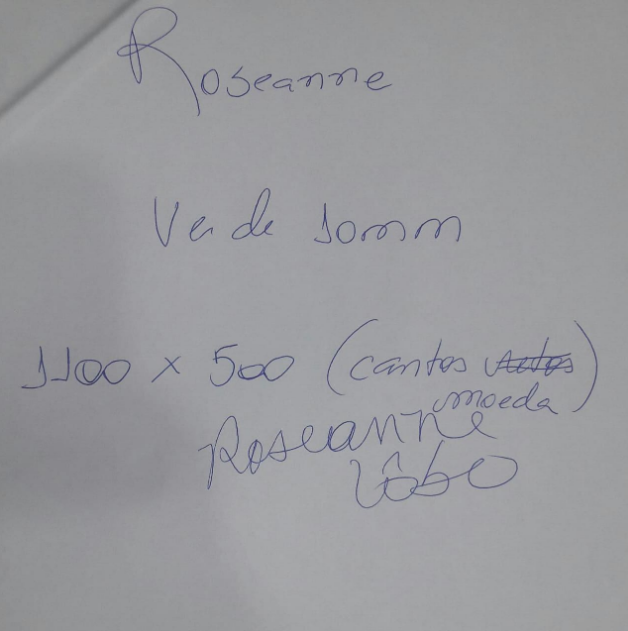 Roseanne
Verde 10mm
1100 x 500 (cantos retos)
moeda
Roseanne
Lôbo